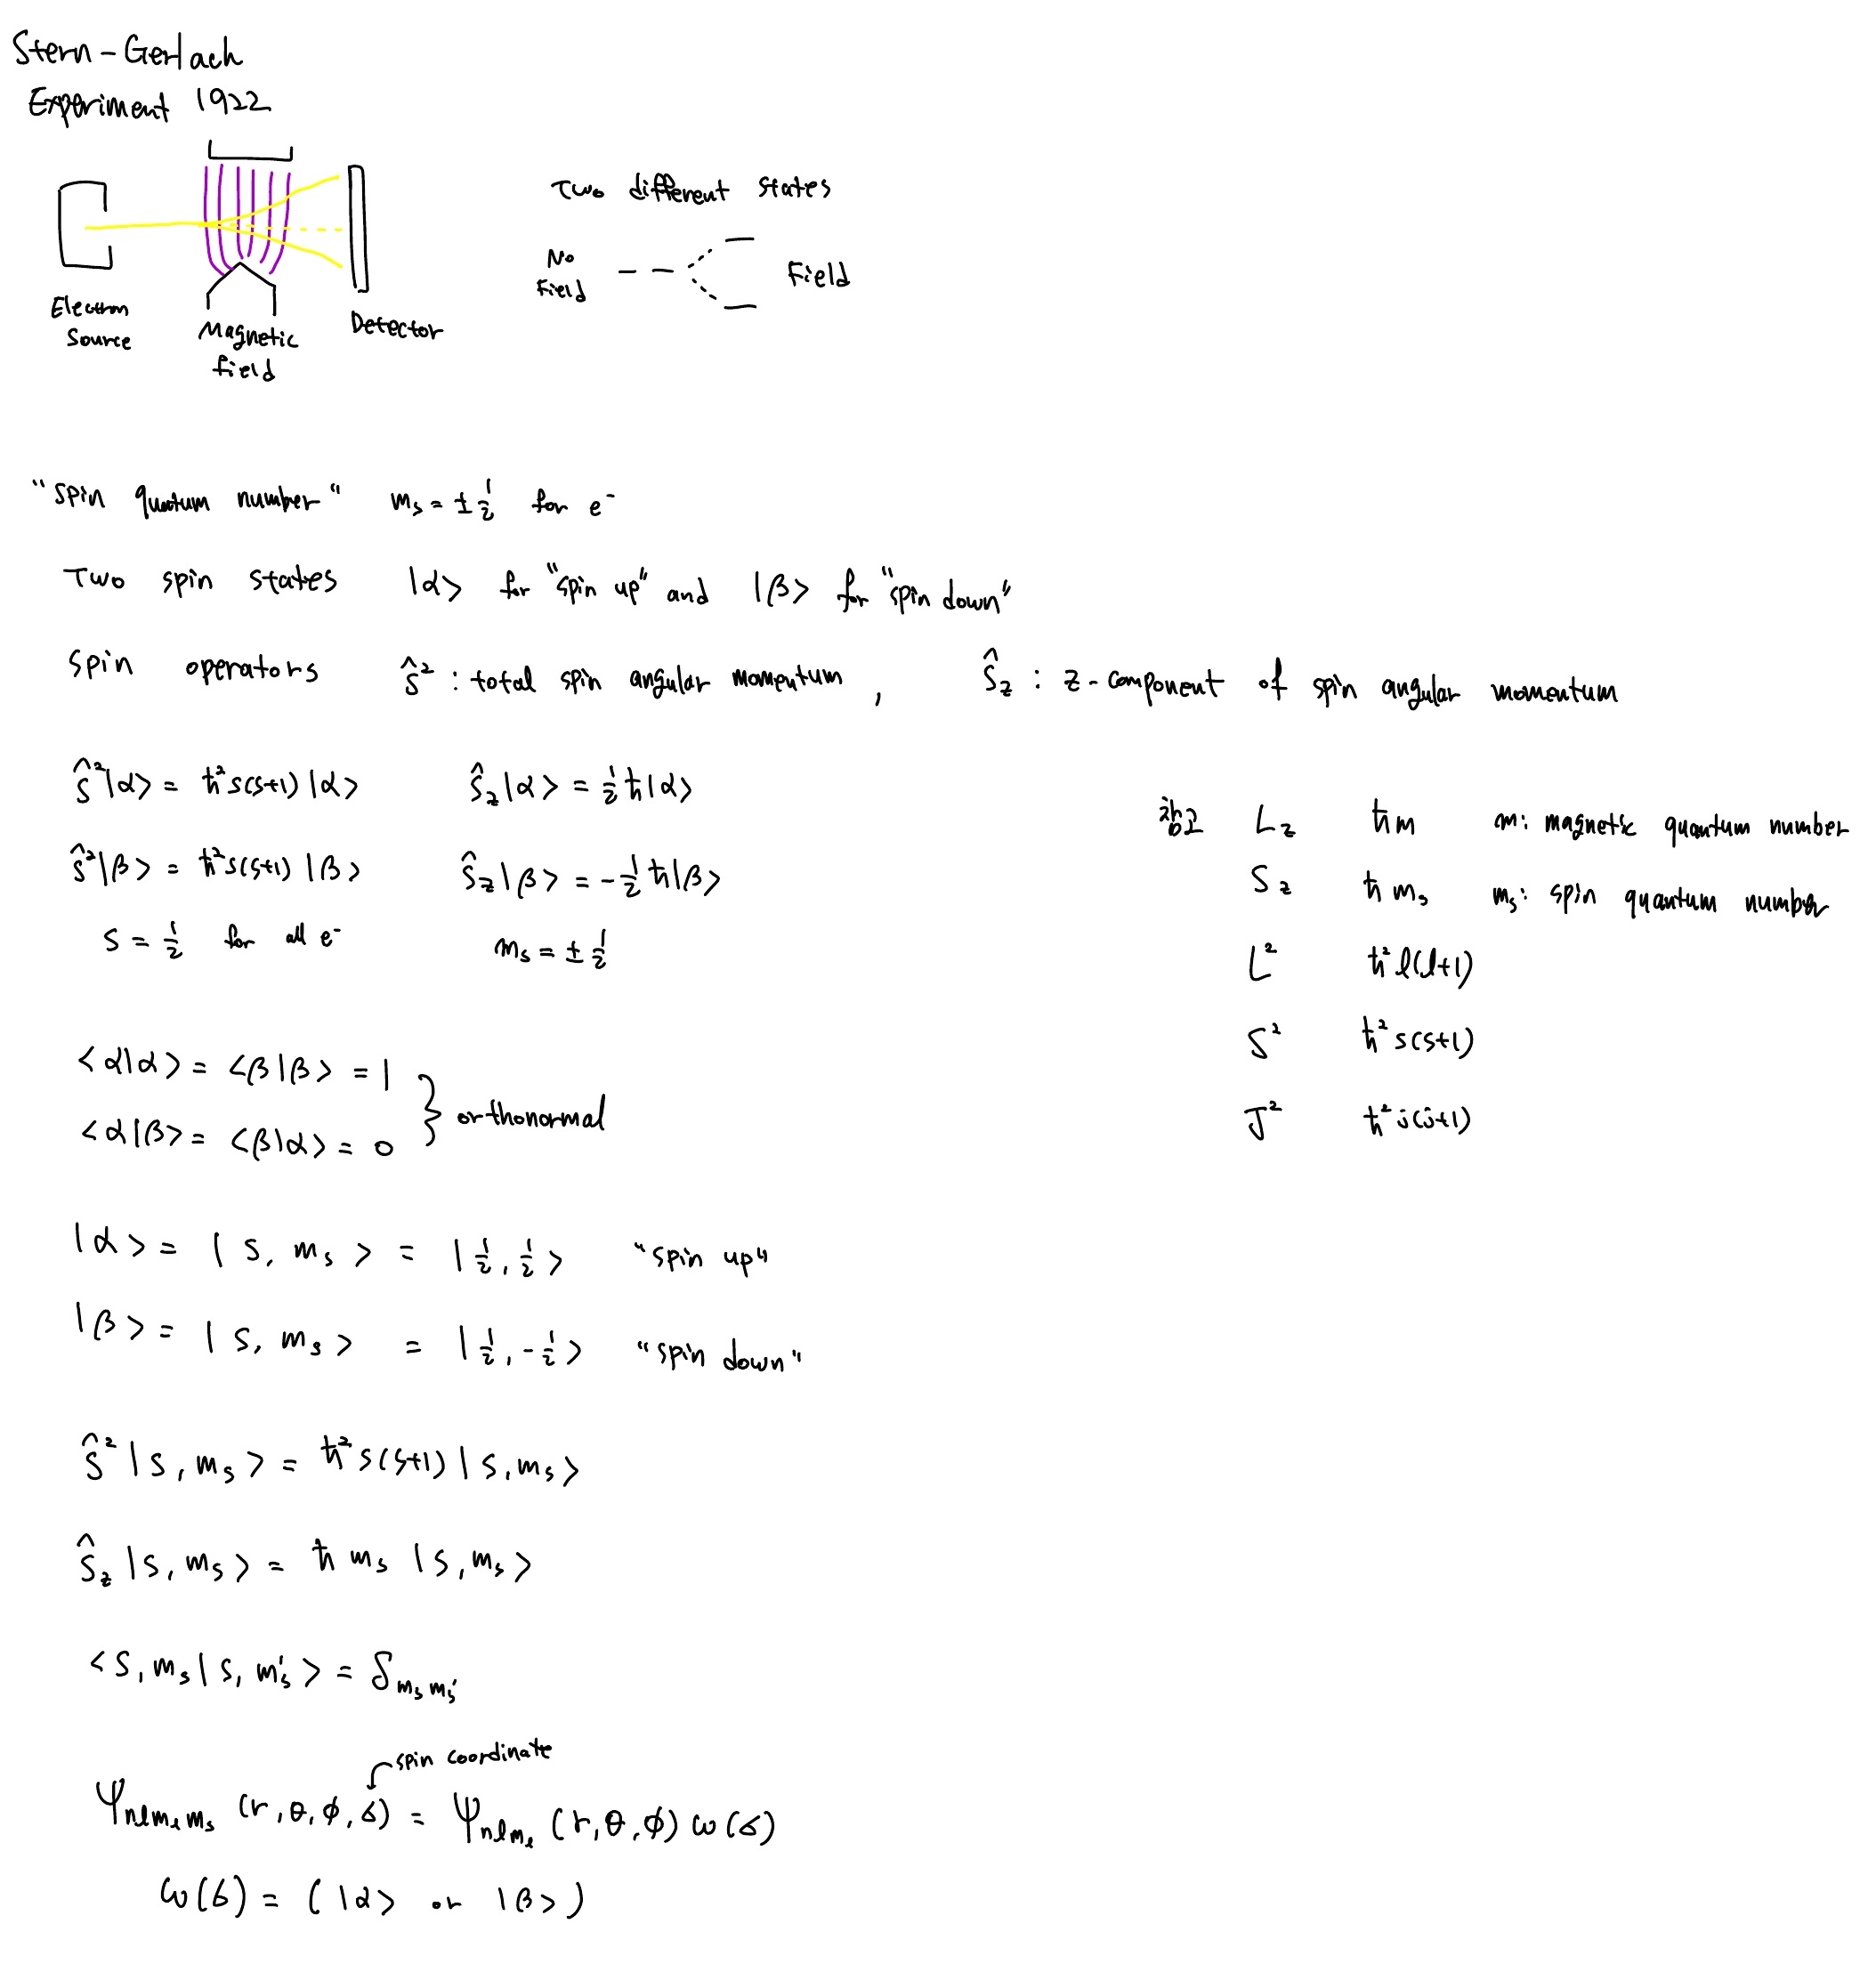 Stern-Gerlach
Experiment 1922
Two different states
No
Field
Field
Electron
Source
Magnetic
field
Detector
"spin quatum number" mₛ = ±½ for e⁻
Two spin states |α> for "spin up" and |β> for "spin down"
spin operators Ŝ² : total spin angular momentum, Ŝz : z-component of spin angular momentum
Ŝ²|α> = ħ²s(s+1)|α> Ŝz|α> = ½ħ|α>
Ŝ²|β> = ħ²s(s+1)|β> Ŝz|β> = -½ħ|β>
s = ½ for all e⁻ mₛ = ±½
Lz ħm m: magnetic quantum number
Sz ħmₛ mₛ: spin quantum number
L² ħ²l(l+1)
S² ħ²s(s+1)
J² ħ²j(j+1)
<α|α> = <β|β> = 1
<α|β> = <β|α> = 0
} orthonormal
|α> = |s, mₛ> = |½, ½> "spin up"
|β> = |s, mₛ> = |½, -½> "spin down"
Ŝ²|s, mₛ> = ħ²s(s+1)|s, mₛ>
Ŝz|s, mₛ> = ħmₛ|s, mₛ>
<s, mₛ|s, mₛ'> = δmₛmₛ'
spin coordinate
Ψnlmₗmₛ (r, θ, φ, σ) = Ψnlmₗ (r, θ, φ) ω(σ)
ω(σ) = (|α> or |β>)